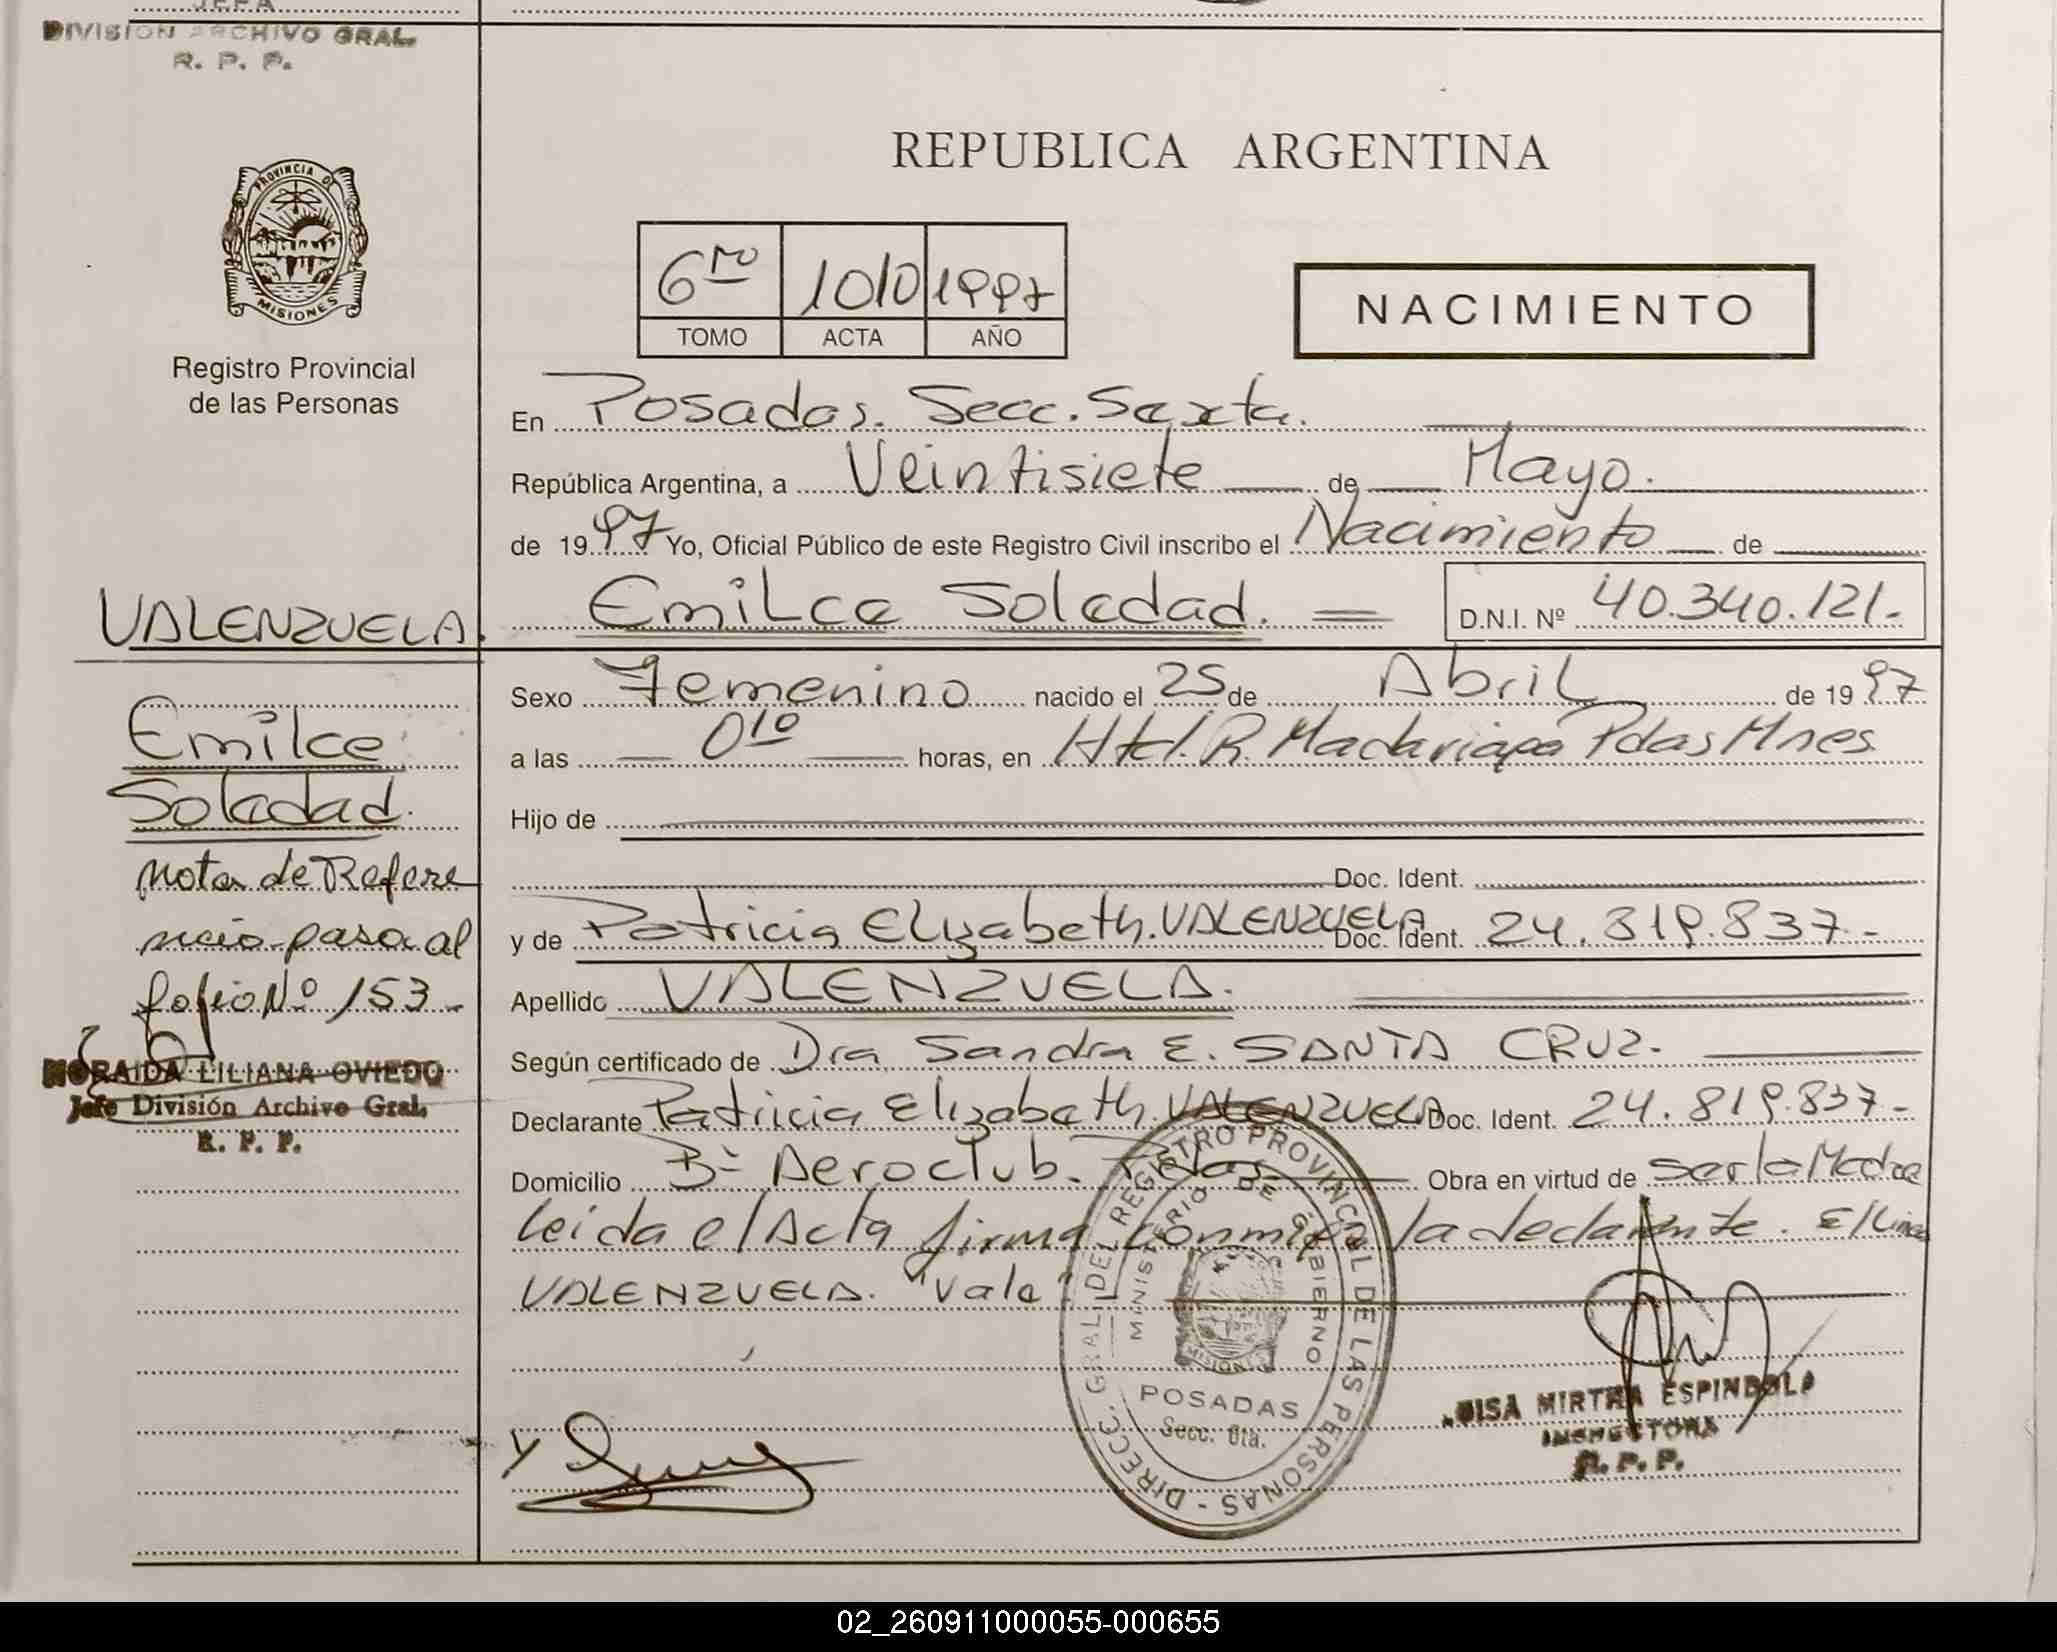 JEFA
DIVISION ARCHIVO GRAL.
R. P. P.
PROVINCIA DE
MISIONES
Registro Provincial
de las Personas
REPUBLICA ARGENTINA
6ro 1010 1997
TOMO ACTA AÑO
NACIMIENTO
En Posadas. Secc. Sexta.
República Argentina, a Veintisiete de Mayo.
de 1997 Yo, Oficial Público de este Registro Civil inscribo el Nacimiento de
Emilce Soledad. D.N.I. Nº 40.340.121.-
VALENZUELA.
Emilce
Soledad.
Nota de Refere
ncia pasa al
folio Nº 153-
NORAIDA LILIANA OVIEDO
Jefe División Archivo Gral.
R. P. P.
Sexo Femenino nacido el 25 de Abril de 1997
a las 010 horas, en Htal. R. Madariaga Pdas Mnes
Hijo de
Doc. Ident.
y de Patricia Elizabeth. VALENZUELA Doc. Ident. 24.819.837.-
Apellido VALENZUELA.
Según certificado de Dra Sandra E. SANTA CRUZ.
Declarante Patricia Elizabeth. VALENZUELA Doc. Ident. 24.819.837-
Domicilio Bº Aeroclub. Pdas. Obra en virtud de ser la Madre
leida el Acta firma conmigo la declarante. E/Linea
VALENZUELA. "Vale"
DIRECC. GRAL. DEL REGISTRO PROVINCIAL DE LAS PERSONAS -
MINISTERIO DE GOBIERNO
MISIONES
POSADAS
Secc. 6ta.
MIRTHA ESPINDOLA
INSPECTORA
R. P. P.
02_260911000055-000655